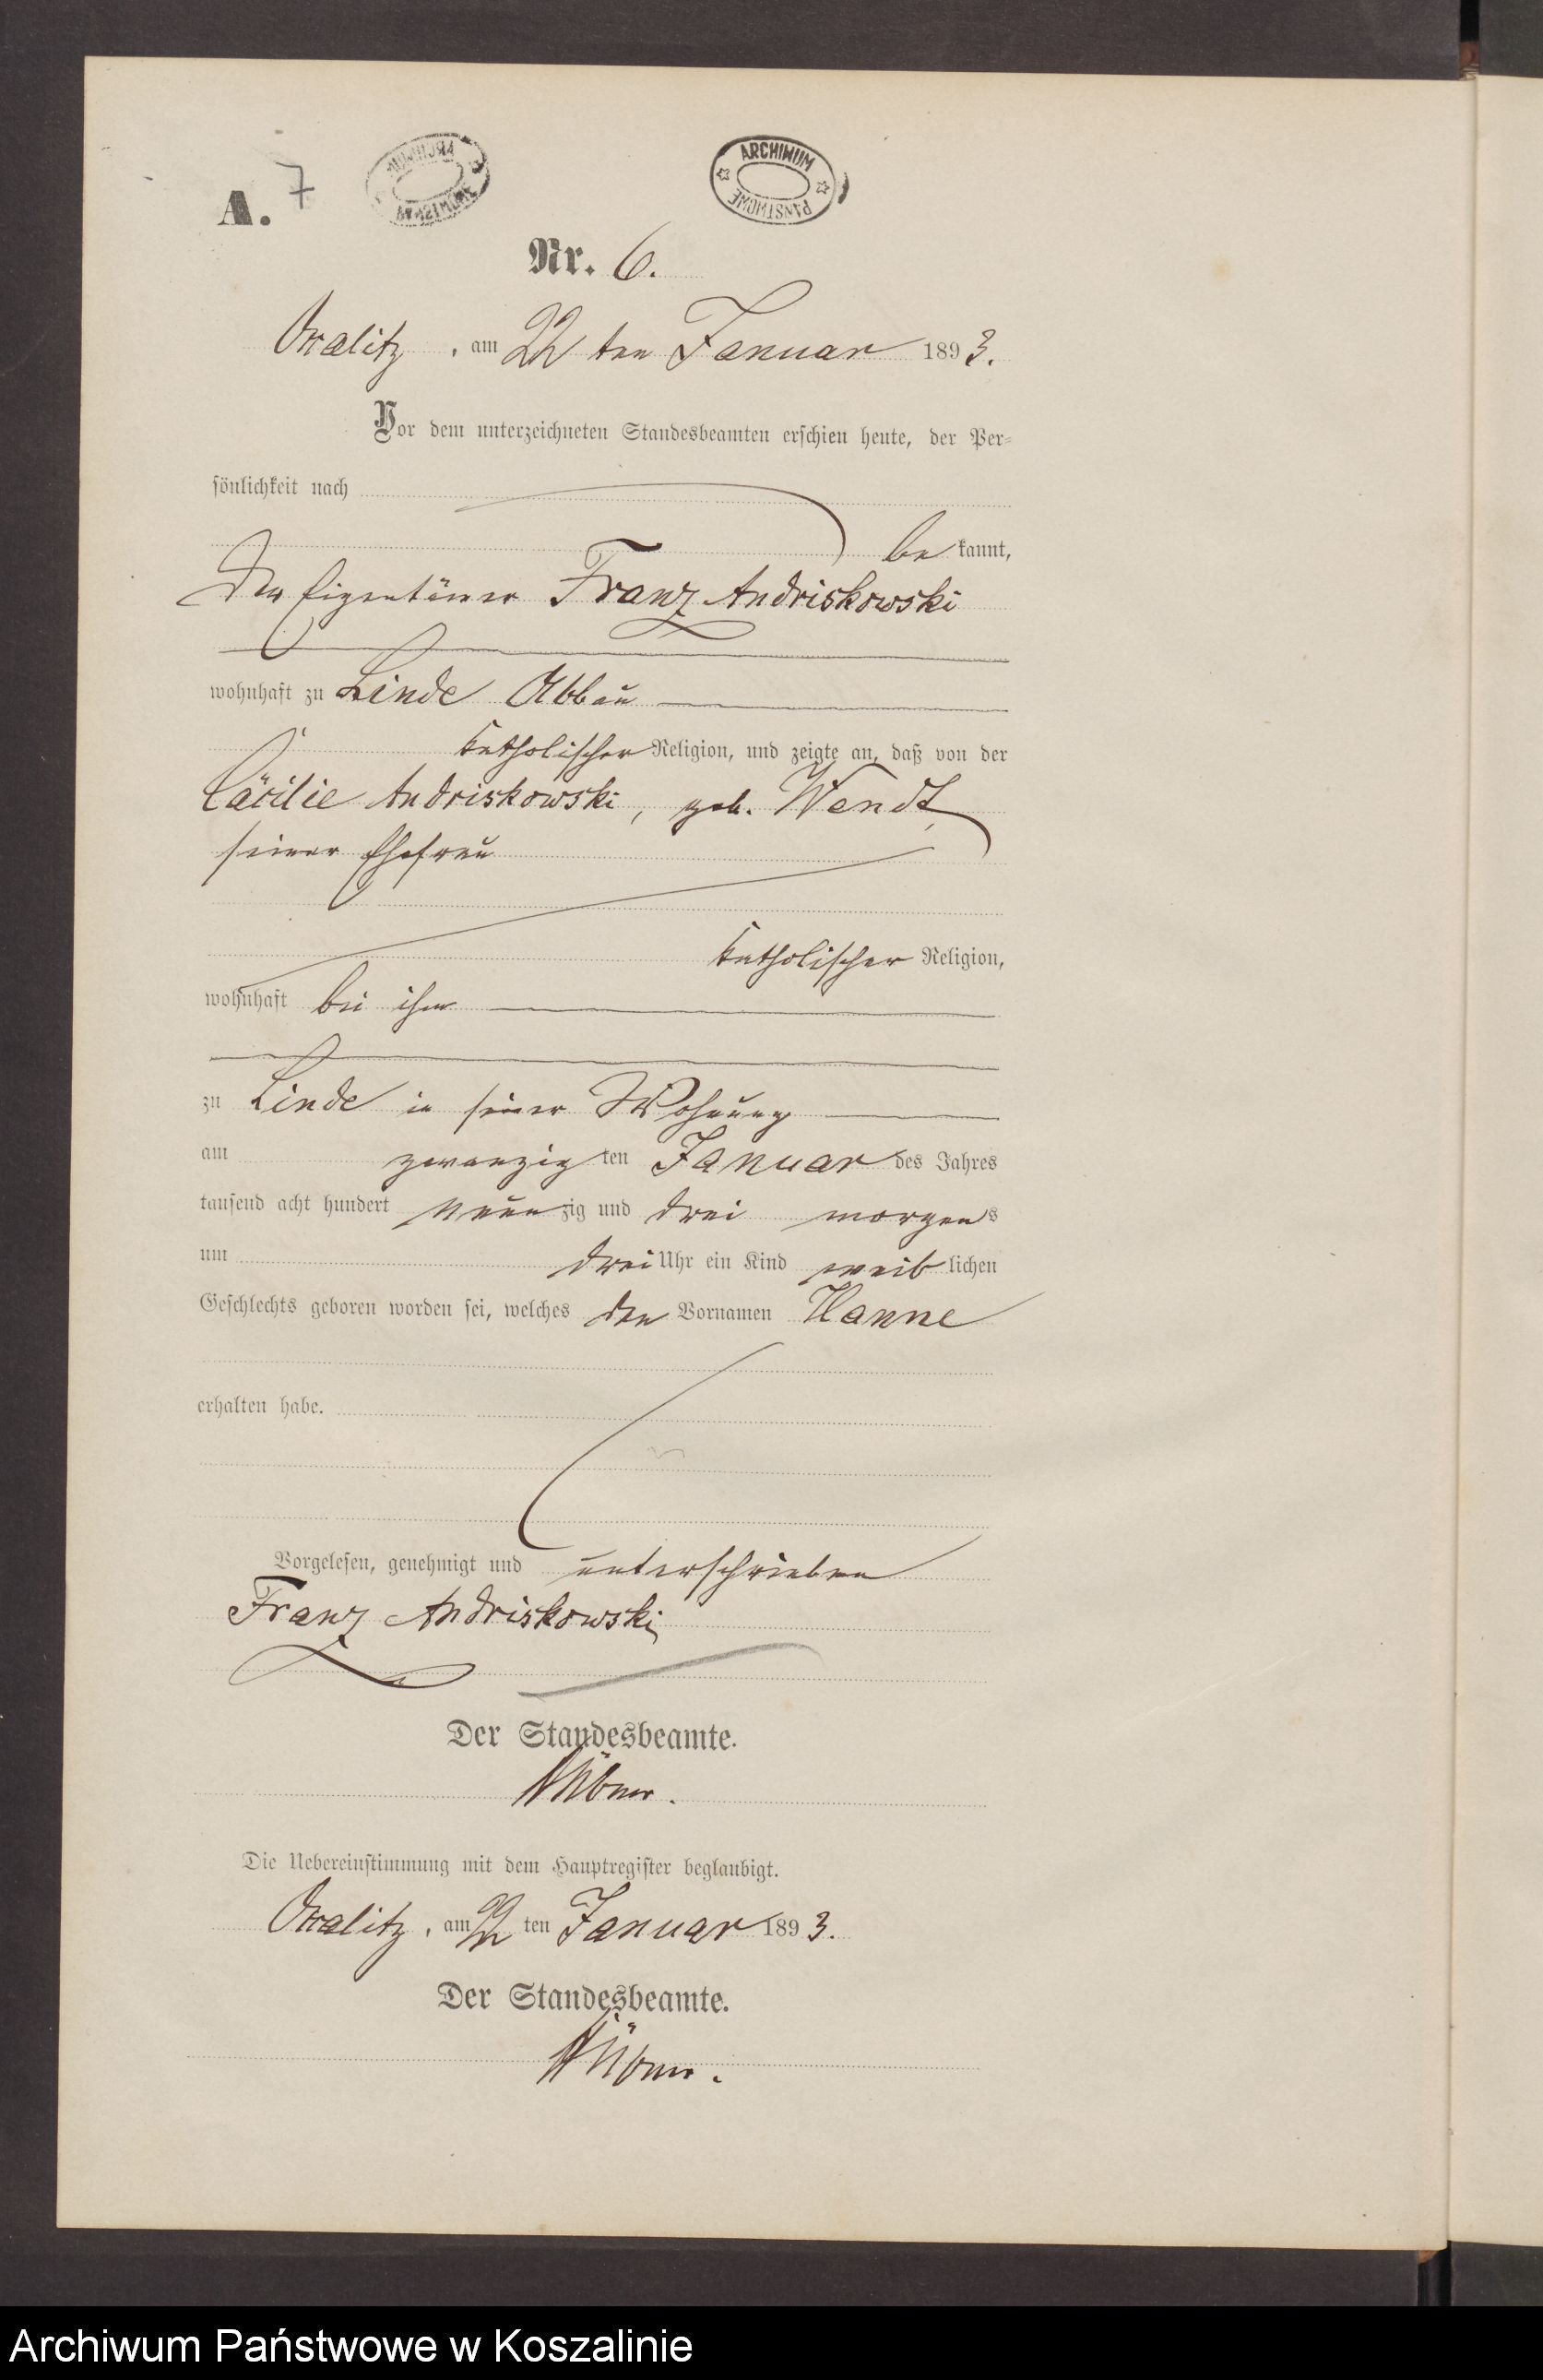 A. 7
ARCHIWUM PAŃSTWOWE
ARCHIWUM PAŃSTWOWE
Nr. 6.
am 22 ten Januar 1893.
Vor dem unterzeichneten Standesbeamten erschien heute, der Per=
sönlichkeit nach
be kannt,
der Eigentümer Franz Andriskowski
wohnhaft zu Linde Abbau
katholischer Religion, und zeigte an, daß von der
Cäcilie Andriskowski, geb. Wendt,
seiner Ehefrau
katholischer Religion,
wohnhaft bei ihm
zu Linde in seiner Wohnung
am zwanzig ten Januar des Jahres
tausend acht hundert neun zig und drei morgens
um drei Uhr ein Kind weib lichen
Geschlechts geboren worden sei, welches den Vornamen Hanne
erhalten habe.
Vorgelesen, genehmigt und unterschrieben
Franz Andriskowski
Der Standesbeamte.
Die Uebereinstimmung mit dem Hauptregister beglaubigt.
am 22 ten Januar 1893.
Der Standesbeamte.
Archiwum Państwowe w Koszalinie